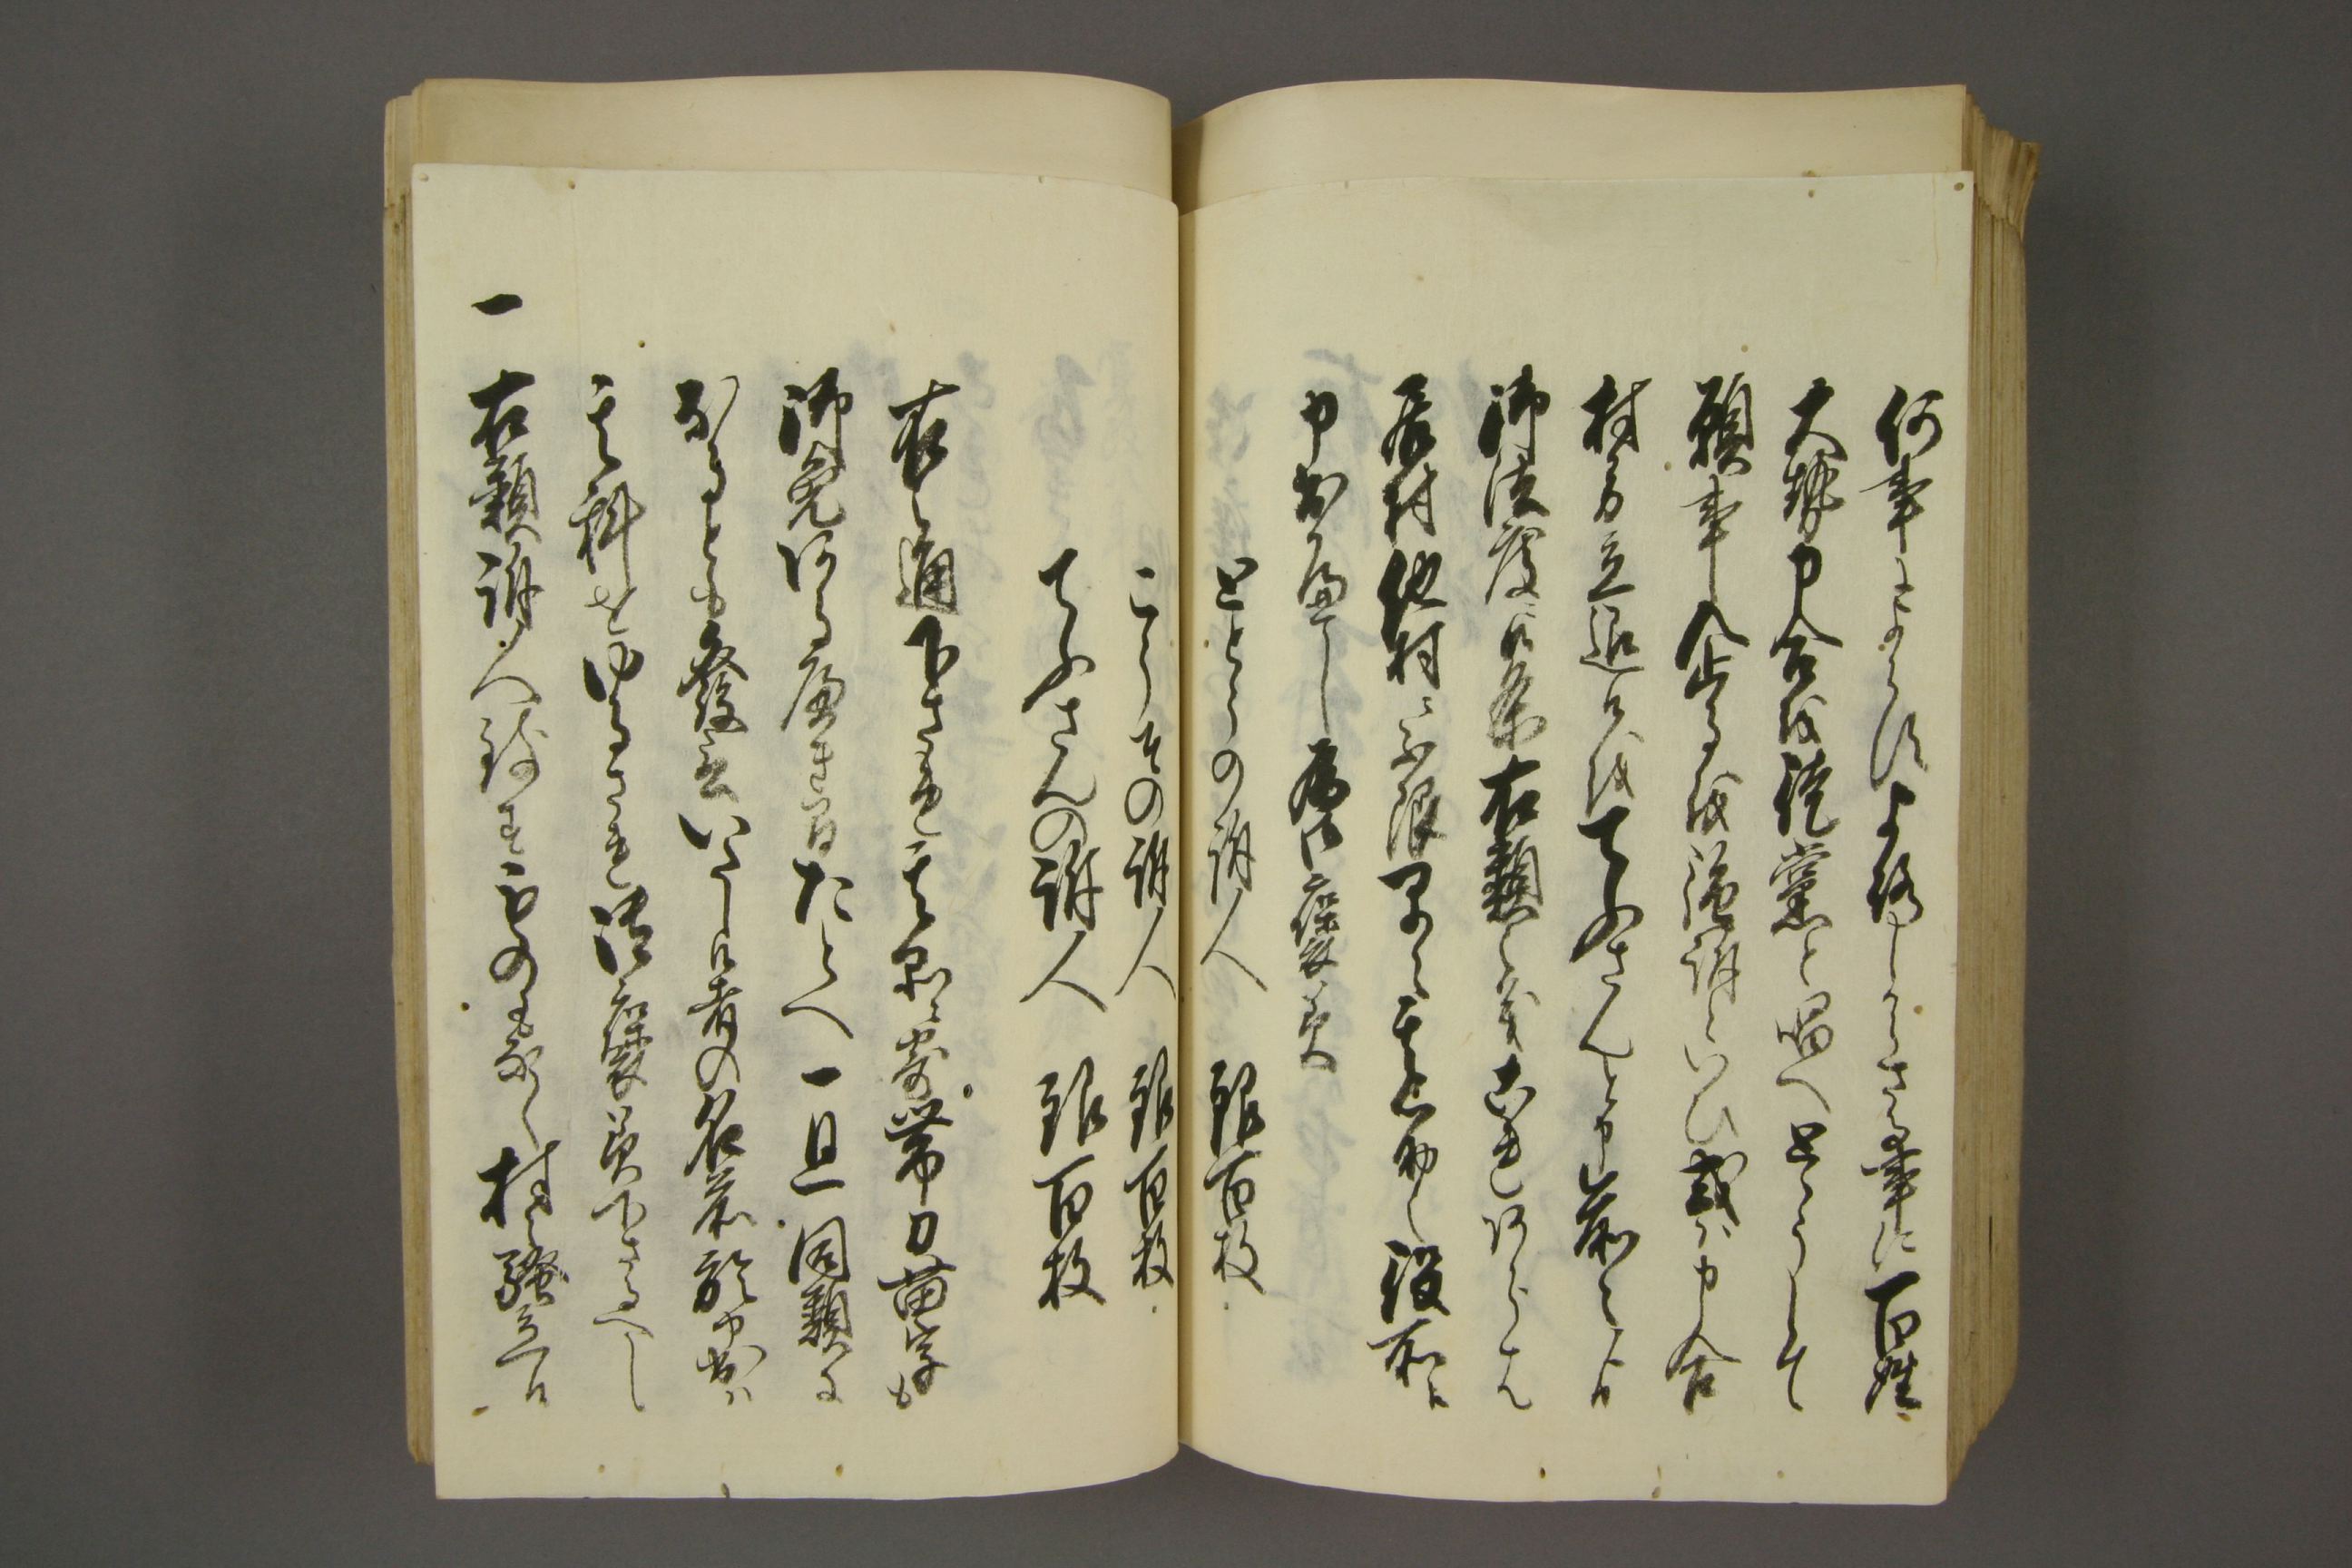 何事によらすよろしからさる事に百姓
大勢申合候徒党と唱へととうして
願事企るを強訴といひ或ハ申合
村方立退候をてうさんと申前々より
御法度ニ候条右類之義これあらは
居村他村ニ不限早々其筋之役所江
申出へし為御褒美
ととうの訴人　銀百枚
こうその訴人　銀百枚
てうさんの訴人　銀百枚
右之通下され其品ニ寄帯刀苗字も
御免あるへき間たとへ一旦同類に
なるとも発言いたし候者の名前於申出ハ
其科をゆるされ御褒美下さるへし
一　右類訴人致すものもなく村々騒立候